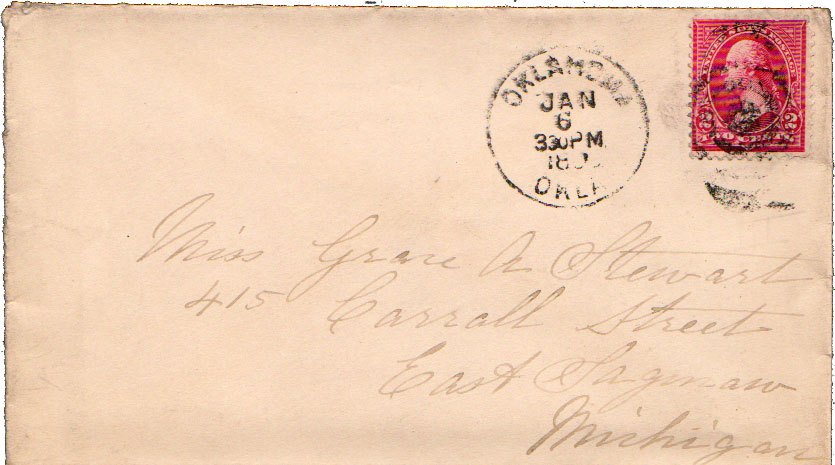 OKLAHOMA
JAN
6
330PM
OKLA
2 2
Miss Grace A Stewart
415 Carroll Street
East Saginaw
Michigan